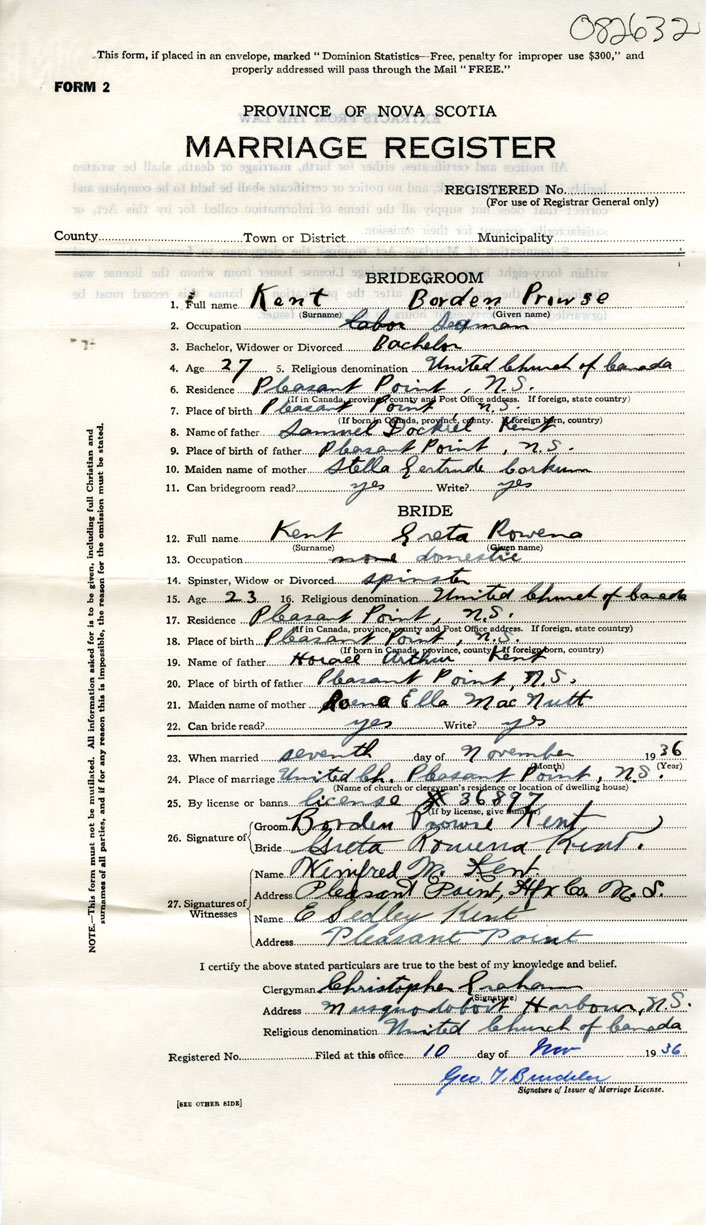 082632
This form, if placed in an envelope, marked "Dominion Statistics—Free, penalty for improper use $300," and
properly addressed will pass through the Mail "FREE."
FORM 2
PROVINCE OF NOVA SCOTIA
MARRIAGE REGISTER
REGISTERED No.
(For use of Registrar General only)
County Town or District Municipality
BRIDEGROOM
1. Full name Kent Borden Prowse
(Surname) (Given name)
2. Occupation labor Seaman
3. Bachelor, Widower or Divorced Bachelor
4. Age 27 5. Religious denomination United Church of Canada
6. Residence Pleasant Point, N.S.
(If in Canada, province, county and Post Office address. If foreign, state country)
7. Place of birth Pleasant Point N.S.
(If born in Canada, province, county. If foreign born, country)
8. Name of father Samuel Kent
9. Place of birth of father Pleasant Point, N.S.
10. Maiden name of mother Stella Gertrude Corkum
11. Can bridegroom read? yes Write? yes
BRIDE
12. Full name Kent Greta Rowena
(Surname) (Given name)
13. Occupation none domestic
14. Spinster, Widow or Divorced spinster
15. Age 23 16. Religious denomination United Church of Canada
17. Residence Pleasant Point, N.S.
(If in Canada, province, county and Post Office address. If foreign, state country)
18. Place of birth Pleasant Point, N.S.
(If born in Canada, province, county. If foreign born, country)
19. Name of father Horace Arthur Kent
20. Place of birth of father Pleasant Point, N.S.
21. Maiden name of mother Ella MacNutt
22. Can bride read? yes Write? yes
23. When married seventh day of November 1936
(Month) (Year)
24. Place of marriage United Ch. Pleasant Point, N.S.
(Name of church or clergyman's residence or location of dwelling house)
25. By license or banns license # 36897
(If by license, give number)
26. Signature of
Groom Borden Prowse Kent
Bride Greta Rowena Kent.
27. Signatures of Witnesses
Name Winifred M. Kent.
Address Pleasant Point, Hfx Co. N.S.
Name E Sedley Kent
Address Pleasant Point
I certify the above stated particulars are true to the best of my knowledge and belief.
Clergyman Christopher Graham
(Signature)
Address Musquodoboit Harbour, N.S.
Religious denomination United Church of Canada
Registered No. Filed at this office 10 day of Nov 1936
Geo T.
Signature of Issuer of Marriage License.
[SEE OTHER SIDE]
NOTE.—This form must not be mutilated. All information asked for is to be given, including full Christian and
surnames of all parties, and if for any reason this is impossible, the reason for the omission must be stated.